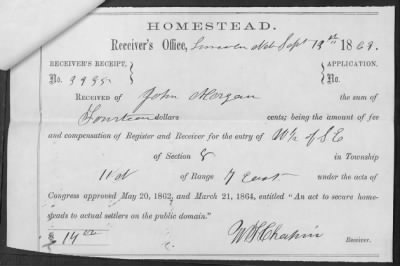 HOMESTEAD.
Receiver's Office, Lincoln Neb Sept 19th 1868.
RECEIVER'S RECEIPT, APPLICATION,
No. 9995 No.
RECEIVED OF John Morgan the sum of
Fourteen dollars cents; being the amount of fee
and compensation of Register and Receiver for the entry of W½ of SE
of Section 8 in Township
11 N of Range 7 East under the acts of
Congress approved May 20, 1862, and March 21, 1864, entitled "An act to secure home-
steads to actual settlers on the public domain."
$ 14 Receiver.